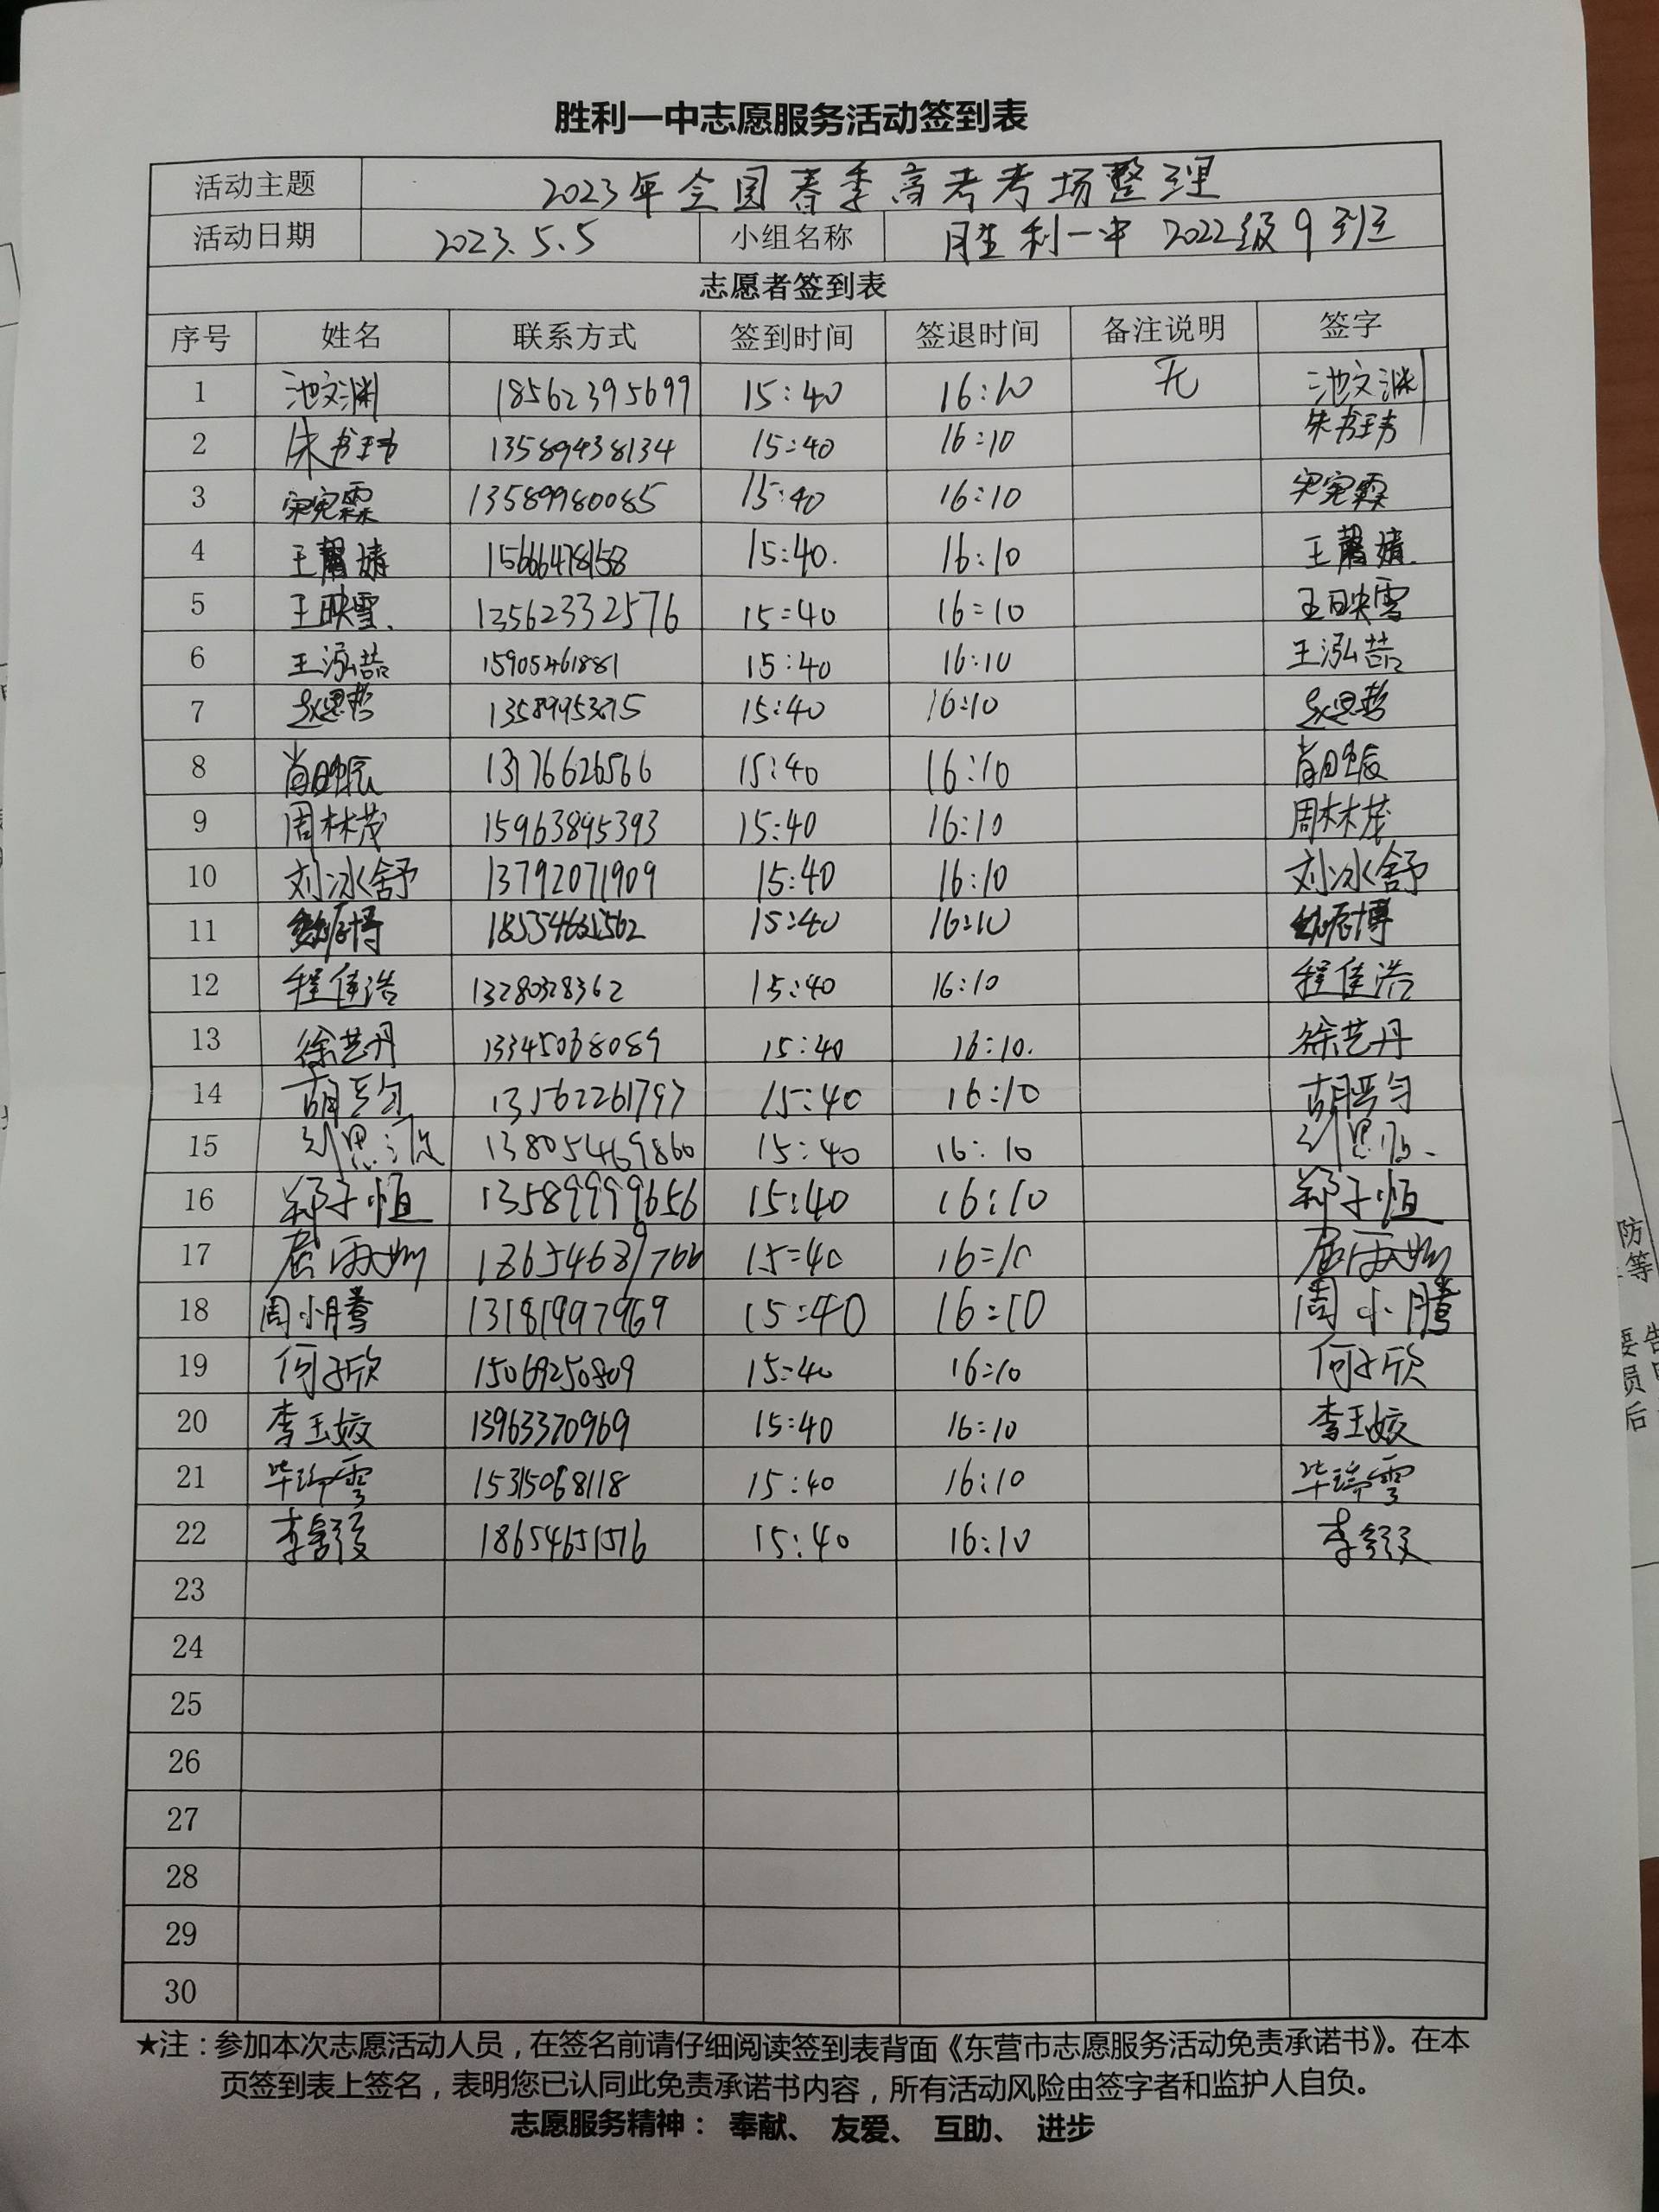 胜利一中志愿服务活动签到表
活动主题 2023年全国春季高考考场整理
活动日期 2023.5.5 小组名称 胜利一中 2022级9班
志愿者签到表
序号 姓名 联系方式 签到时间 签退时间 备注说明 签字
1 池文渊 18562395699 15:40 16:10 无 池文渊
2 朱书玮 13589438134 15:40 16:10 朱书玮
3 宋宛霖 13589980085 15:40 16:10 宋宛霖
4 王馨婧 15666478158 15:40. 16:10 王馨婧.
5 王映雪. 13562332576 15:40 16:10 王映雪
6 王泓喆 15905461881 15:40 16:10 王泓喆
7 赵思哲 15:40 16:10 赵思哲
8 肖晚辰 13176626566 15:40 16:10 肖晚辰
9 周林茂 15963895393 15:40 16:10 周林茂
10 刘冰舒 13792071909 15:40 16:10 刘冰舒
11 15:40 16:10
12 程佳浩 13280328362 15:40 16:10 程佳浩
13 徐艺丹 13345068089 15:40 16:10. 徐艺丹
14 13562261797 15:40 16:10
15 刘思 13805469860 15:40 16:10 刘思
16 郑子恒 13589999656 15:40 16:10 郑子恒
17 屈雨 18654689766 15:40 16:10 屈雨
18 周小腾 13181997969 15:40 16:10 周小腾
19 何子欣 15069250809 15:40 16:10 何子欣
20 李玉姣 13963370969 15:40 16:10 李玉姣
21 毕瑞雪 15315068118 15:40 16:10 毕瑞雪
22 李 18654651516 15:40 16:10 李
23
24
25
26
27
28
29
30
★注：参加本次志愿活动人员，在签名前请仔细阅读签到表背面《东营市志愿服务活动免责承诺书》。在本
页签到表上签名，表明您已认同此免责承诺书内容，所有活动风险由签字者和监护人自负。
志愿服务精神： 奉献、 友爱、 互助、 进步
防
等
要告
员
后